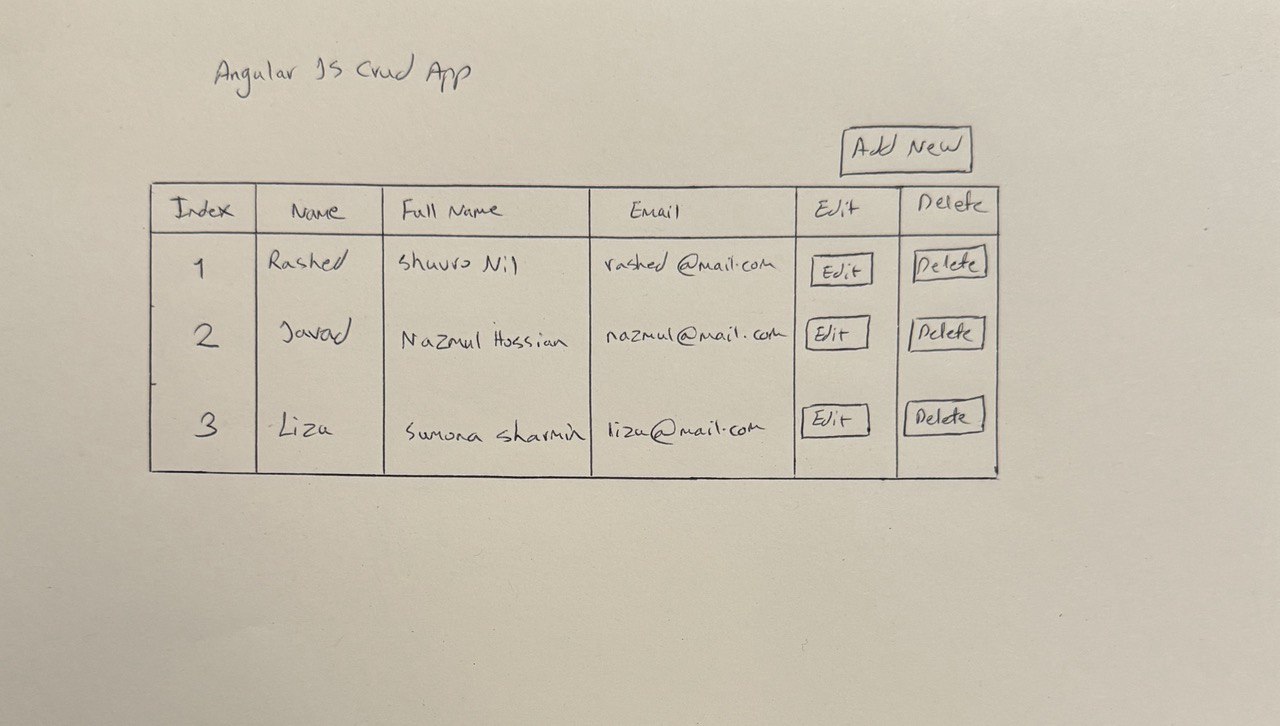 Angular JS Crud App
Add New
Index Name Full Name Email Edit Delete
1 Rashed Shuvro Nil rashed@mail.com Edit Delete
2 Javad Nazmul Hossian nazmul@mail.com Edit Delete
3 Lizu Sumona Sharmin lizu@mail.com Edit Delete